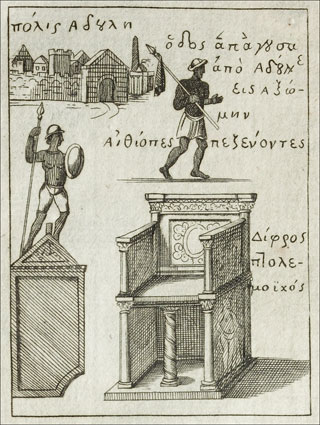 πόλις Αδȣλη
ὁδὸς ἀπάγȣσα
ἀπὸ Αδȣλε
εἰς Αξώ-
μην
Αἰθίοπες πεζεύοντες
Δίφρος
Πτολε-
μοϊκός